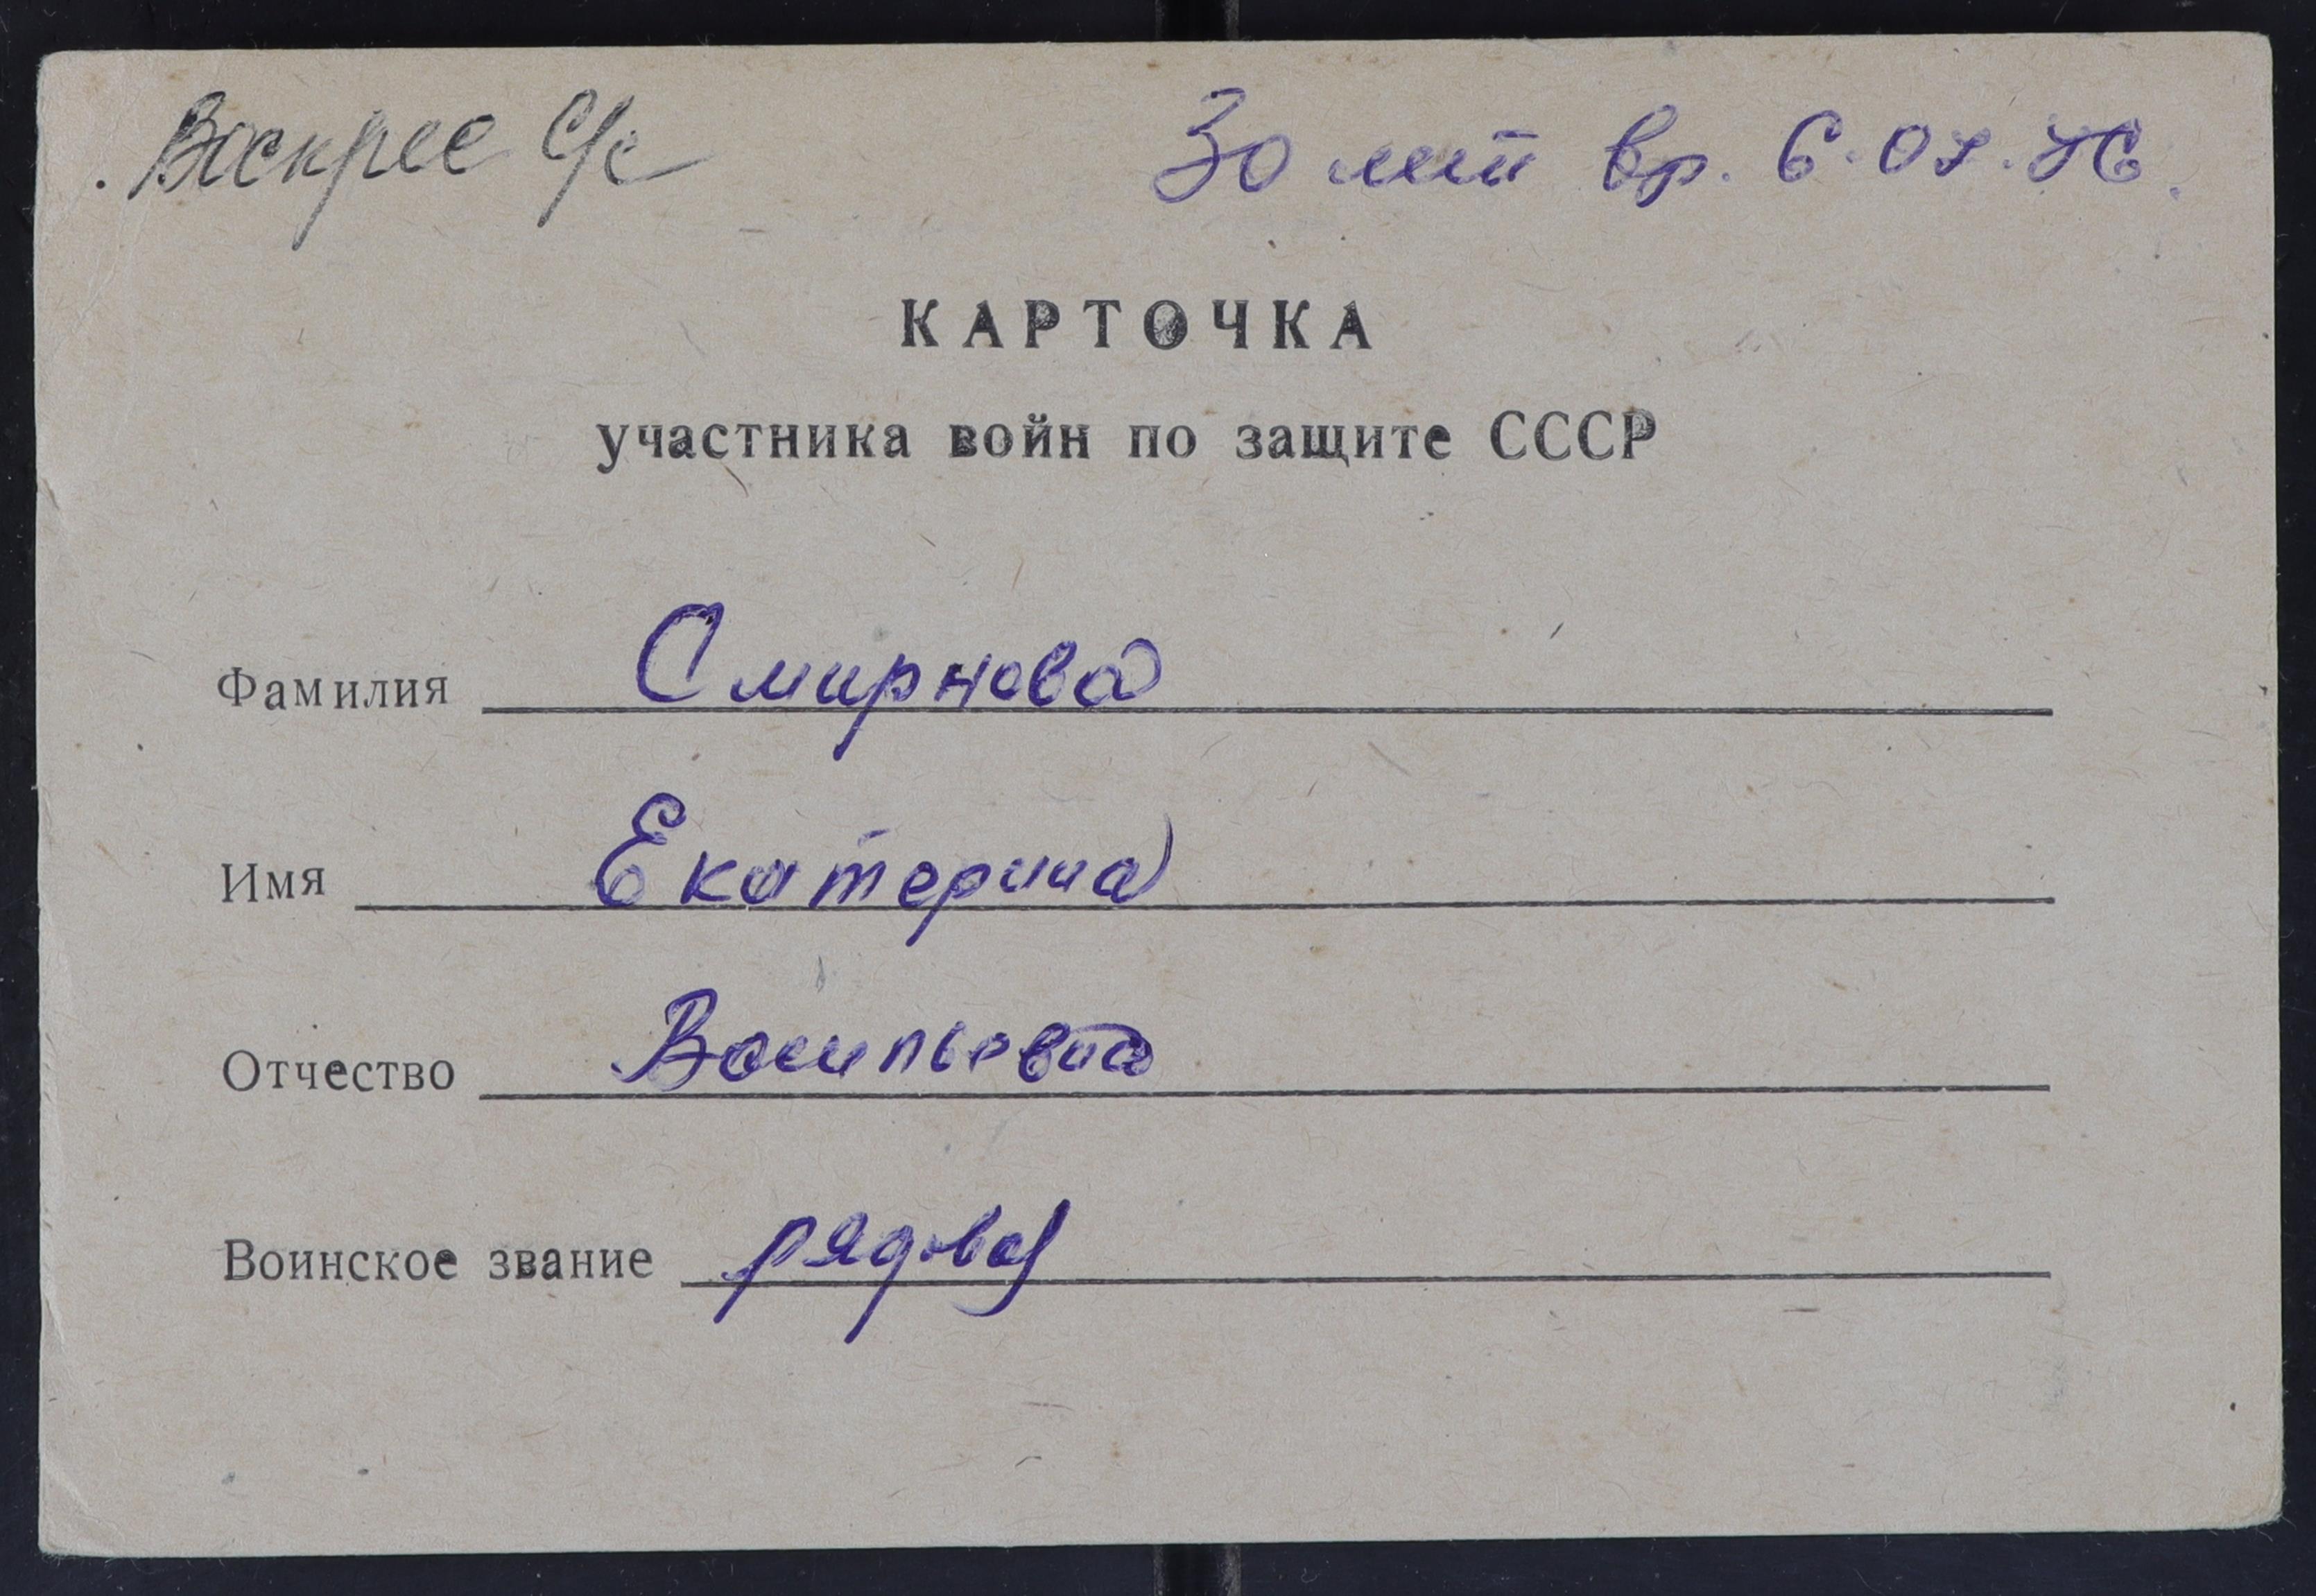 Воскрес с/с
30 лет вр. 6.07.76.
КАРТОЧКА
участника войн по защите СССР
Фамилия Смирнова
Имя Екатерина
Отчество Васильевна
Воинское звание рядовой